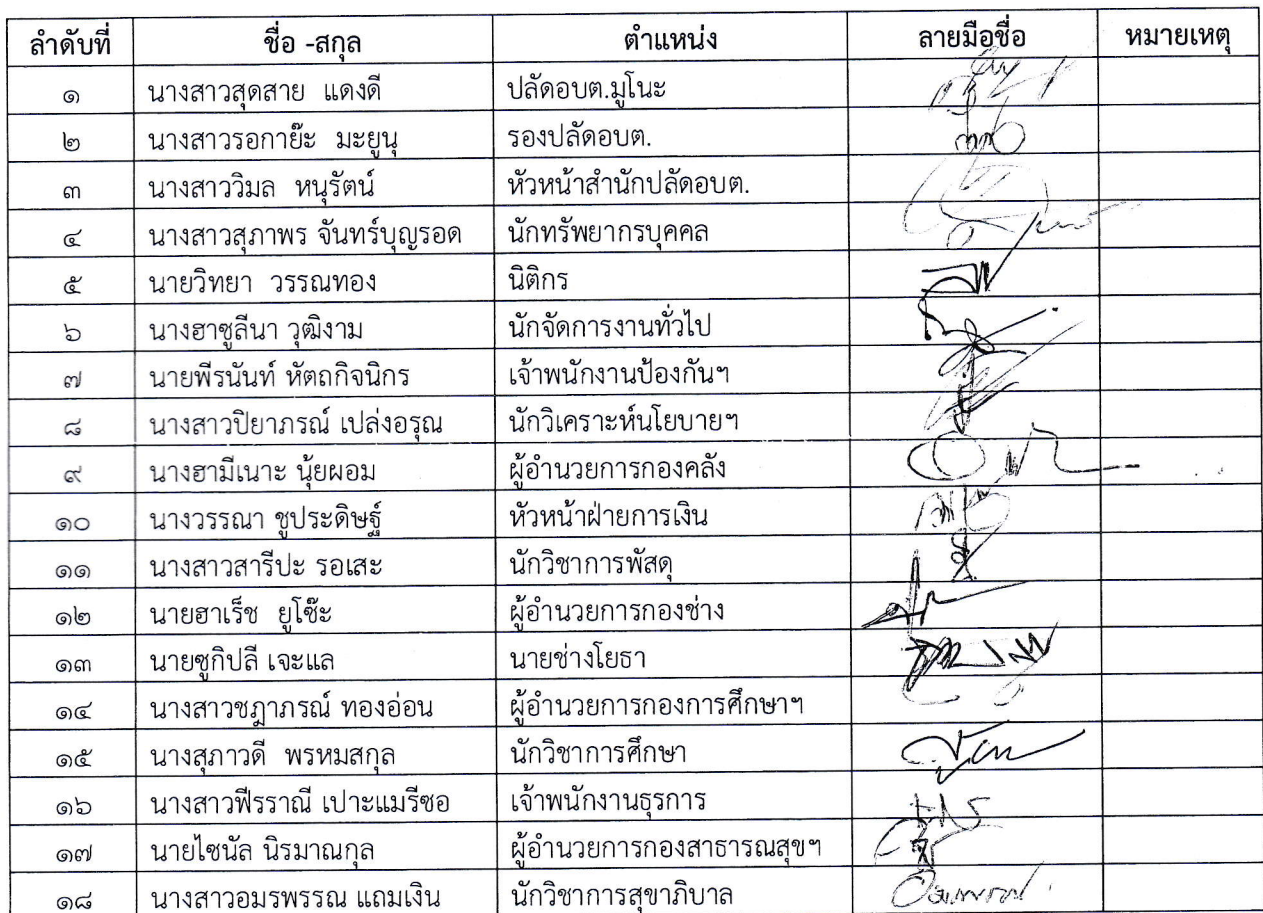 ลำดับที่ ชื่อ -สกุล ตำแหน่ง ลายมือชื่อ หมายเหตุ
๑ นางสาวสุดสาย แดงดี ปลัดอบต.มูโนะ
๒ นางสาวรอกาย๊ะ มะยูนุ รองปลัดอบต.
๓ นางสาววิมล หนุรัตน์ หัวหน้าสำนักปลัดอบต.
๔ นางสาวสุภาพร จันทร์บุญรอด นักทรัพยากรบุคคล
๕ นายวิทยา วรรณทอง นิติกร
๖ นางฮาซูลีนา วุฒิงาม นักจัดการงานทั่วไป
๗ นายพีรนันท์ หัตถกิจนิกร เจ้าพนักงานป้องกันฯ
๘ นางสาวปิยาภรณ์ เปล่งอรุณ นักวิเคราะห์นโยบายฯ
๙ นางฮามีเนาะ นุ้ยผอม ผู้อำนวยการกองคลัง
๑๐ นางวรรณา ชูประดิษฐ์ หัวหน้าฝ่ายการเงิน
๑๑ นางสาวสารีปะ รอเสะ นักวิชาการพัสดุ
๑๒ นายฮาเร็ช ยูโซ๊ะ ผู้อำนวยการกองช่าง
๑๓ นายซูกิปลี เจะแล นายช่างโยธา
๑๔ นางสาวชฎาภรณ์ ทองอ่อน ผู้อำนวยการกองการศึกษาฯ
๑๕ นางสุภาวดี พรหมสกุล นักวิชาการศึกษา
๑๖ นางสาวฟีรราณี เปาะแมรีซอ เจ้าพนักงานธุรการ
๑๗ นายไซนัล นิรมาณกุล ผู้อำนวยการกองสาธารณสุขฯ
๑๘ นางสาวอมรพรรณ แถมเงิน นักวิชาการสุขาภิบาล